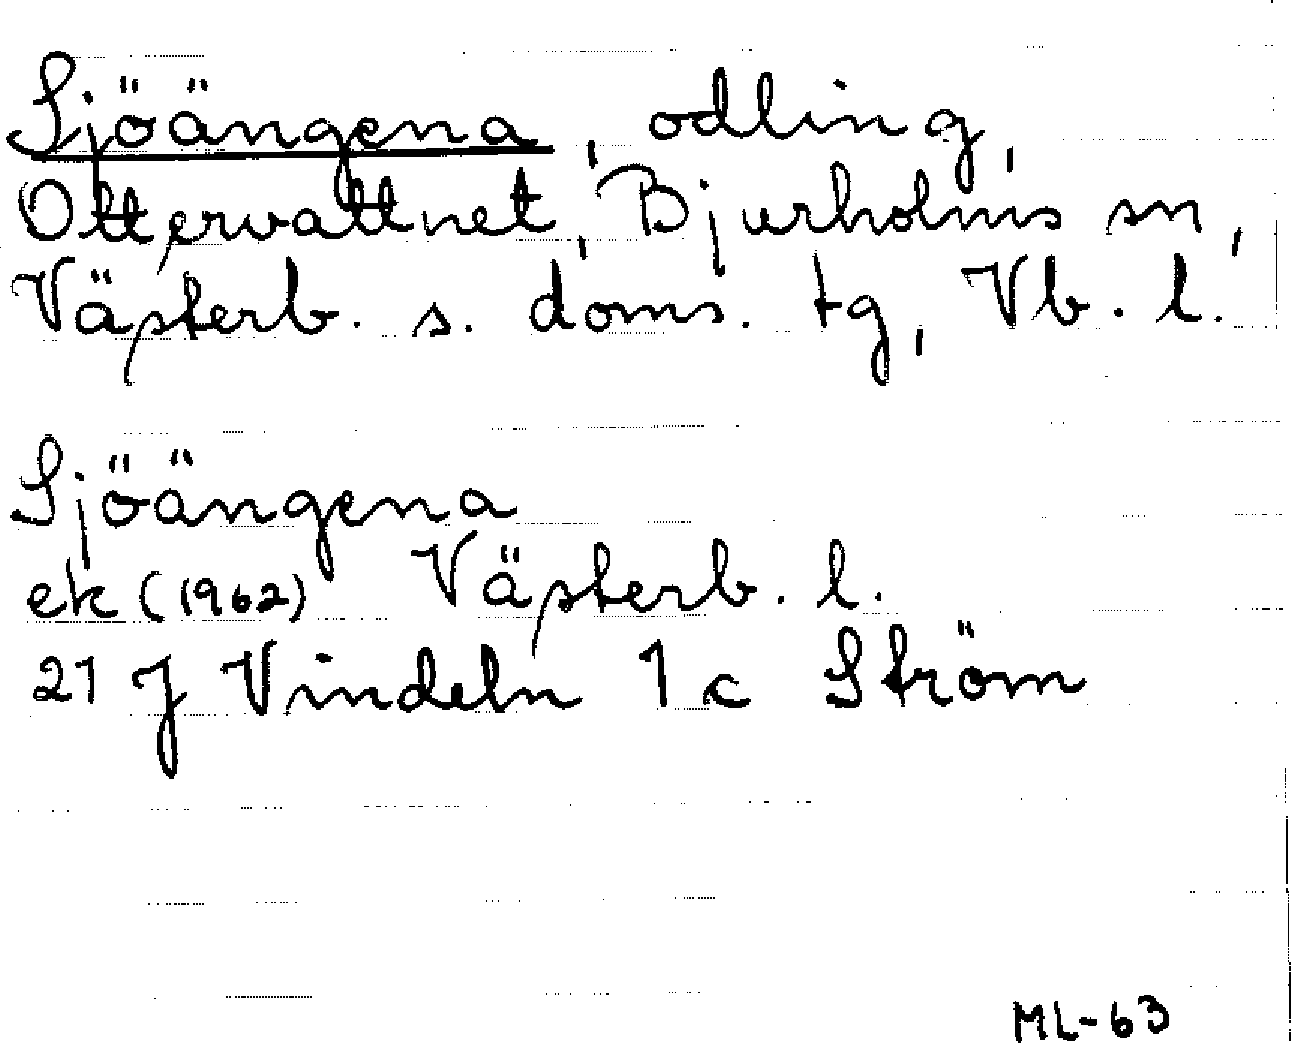 Sjöängena, odling,
Ottervattnet, Bjurholms sn,
Västerb. s. doms. tg, Vb. l.
Sjöängena
ek (1962) Västerb. l.
21 J Vindeln 1 c Ström
ML-63